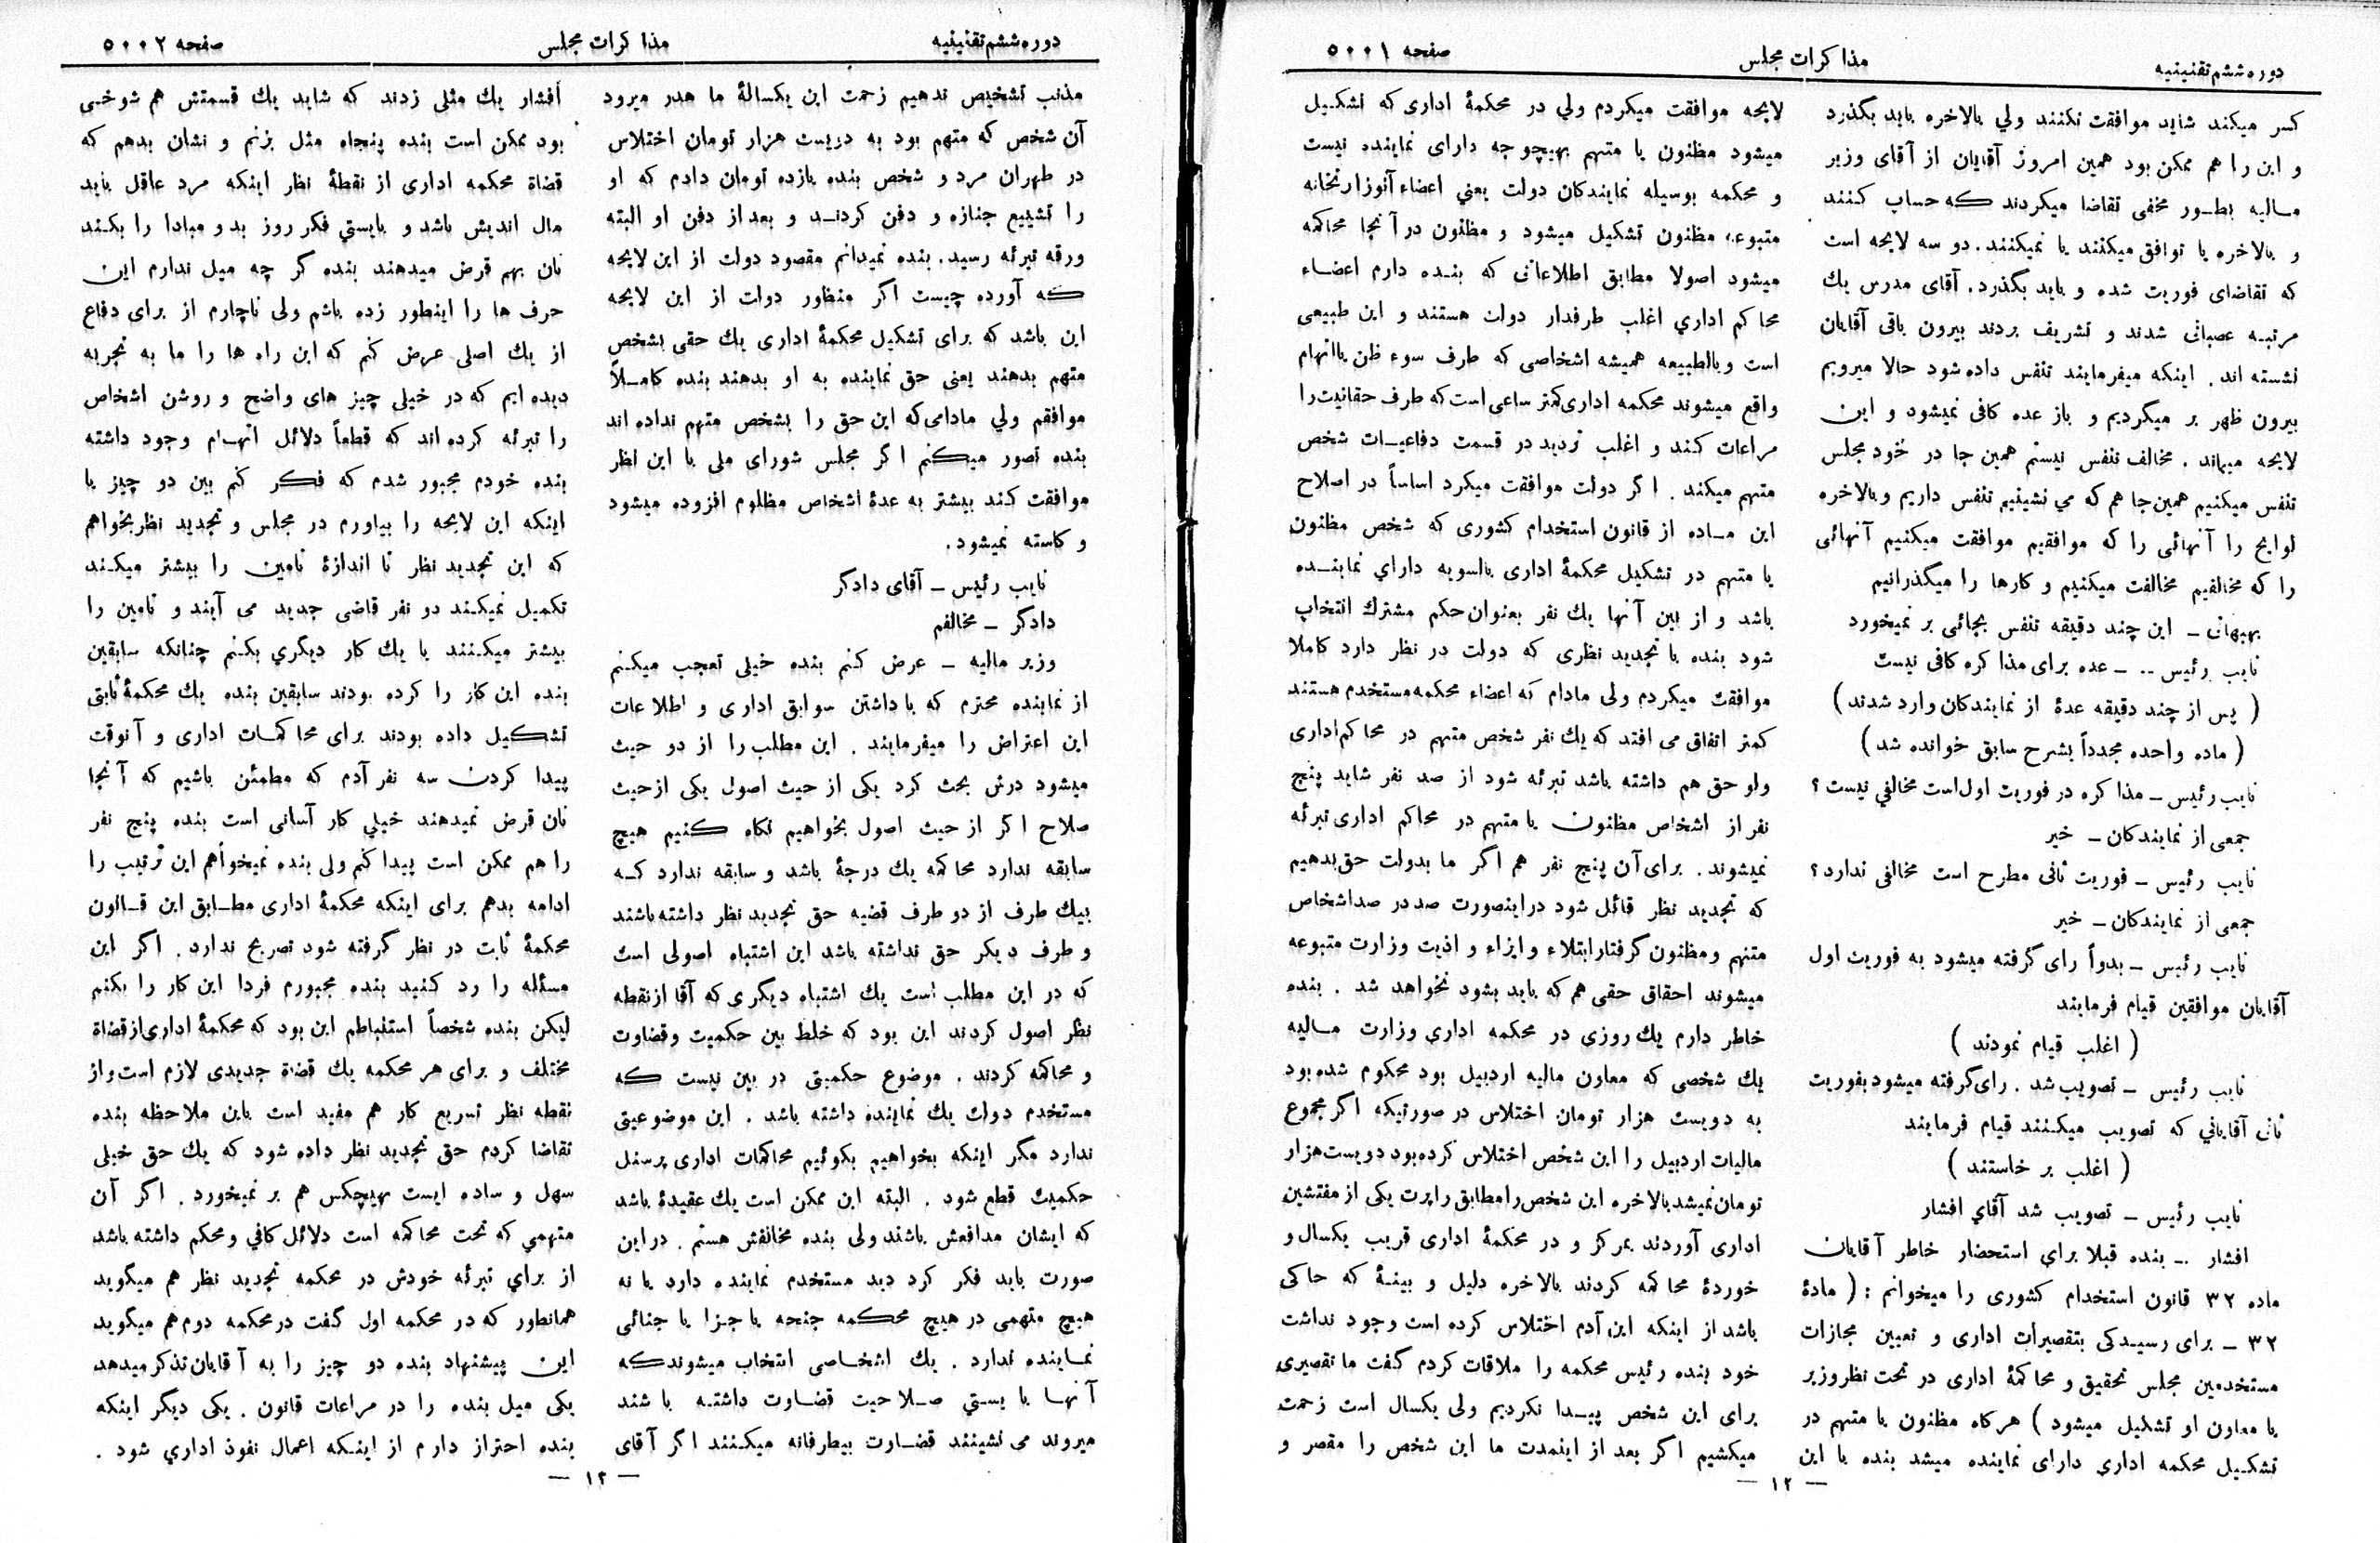 دوره ششم تقنینیه
مذاکرات مجلس
صفحه ۵۰۰۱
کسر میکند شاید موافقت نکنند ولي بالاخره باید بگذرد
و این را هم ممکن بود همین امروز آقایان از آقای وزیر
مالیه بطور مخفی تقاضا میکردند که حساب کنند
و بالاخره یا توافق میکنند یا نمیکنند. دو سه لایحه است
که تقاضای فوریت شده و باید بگذرد. آقای مدرس یك
مرتبه عصبانی شدند و تشریف بردند بیرون باقی آقایان
نشسته اند. اینکه میفرمایند تنفس داده شود حالا میرویم
بیرون ظهر بر میگردیم و باز عده کافی نمیشود و این
لایحه میماند. مخالف تنفس نیستم همین جا در خود مجلس
تنفس میکنیم همین جا هم که می نشینیم تنفس داریم و بالاخره
لوایح را آنهائی را که موافقیم موافقت میکنیم آنهائی
را که مخالفیم مخالفت میکنیم و کارها را میگذرانیم
بهبهانی ـ این چند دقیقه تنفس بجائی بر نمیخورد
نایب رئیس .. ـ عده برای مذاکره کافی نیست
( پس از چند دقیقه عدهٔ از نمایندکان وارد شدند )
( ماده واحده مجدداً بشرح سابق خوانده شد )
نایب رئیس ـ مذاکره در فوریت اول است مخالفي نیست ؟
جمعی از نمایندکان ـ خیر
نایب رئیس ـ فوریت ثانی مطرح است مخالفی ندارد ؟
جمعی از نمایندکان ـ خیر
نایب رئیس ـ بدواً رای گرفته میشود به فوریت اول
آقایان موافقین قیام فرمایند
( اغلب قیام نمودند )
نایب رئیس ـ تصویب شد. رای گرفته میشود بفوریت
ثانی آقایاني که تصویب میکنند قیام فرمایند
( اغلب بر خاستند )
نایب رئیس ـ تصویب شد آقاي افشار
افشار .ـ بنده قبلا براي استحضار خاطر آقایان
ماده ۳۲ قانون استخدام کشوری را میخوانم : ( مادهٔ
۳۲ ـ برای رسیدکی بتقصیرات اداری و تعیین مجازات
مستخدمین مجلس تحقیق و محاکمهٔ اداری در تحت نظر وزیر
یا معاون او تشکیل میشود ) هرکاه مظنون یا متهم در
تشکیل محکمه اداري دارای نماینده میشد بنده با این
لایحه موافقت میکردم ولي در محکمهٔ اداری که تشکیل
میشود مظنون یا متهم بهیچوجه دارای نماینده نیست
و محکمه بوسیله نمایندکان دولت یعني اعضاء آنوزارتخانه
متبوعه مظنون تشکیل میشود و مظنون در آنجا محاکمه
میشود اصولا مطابق اطلاعاتی که بنده دارم اعضاء
محاکم اداري اغلب طرفدار دولت هستند و این طبیعی
است و بالطبیعه همیشه اشخاصی که طرف سوء ظن یا اتهام
واقع میشوند محکمه اداری کمتر ساعی است که طرف حقانیت را
مراعات کند و اغلب تردید در قسمت دفاعیات شخص
متهم میکند. اگر دولت موافقت میکرد اساساً در اصلاح
این ماده از قانون استخدام کشوری که شخص مظنون
یا متهم در تشکیل محکمهٔ اداری بالسویه داراي نماینده
باشد و از بین آنها یك نفر بعنوان حکم مشترك انتخاب
شود بنده با تجدید نظری که دولت در نظر دارد کاملا
موافقت میکردم ولی مادام که اعضاء محکمه مستخدم هستند
کمتر اتفاق می افتد که یك نفر شخص متهم در محاکم اداری
ولو حق هم داشته باشد تبرئه شود از صد نفر شاید پنج
نفر از اشخاص مظنون یا متهم در محاکم اداری تبرئه
نمیشوند. برای آن پنج نفر هم اگر ما بدولت حق بدهیم
که تجدید نظر قائل شود در اینصورت صد در صد اشخاص
متهم و مظنون گرفتار ابتلاء و ایزاء و اذیت وزارت متبوعه
میشوند احقاق حقی هم که باید بشود نخواهد شد. بنده
خاطر دارم یك روزی در محکمه اداري وزارت مالیه
یك شخصی که معاون مالیه اردبیل بود محکوم شده بود
به دویست هزار تومان اختلاس در صورتیکه اگر مجموع
مالیات اردبیل را این شخص اختلاس کرده بود دویست هزار
تومان نمیشد بالاخره این شخص را مطابق راپرت یکی از مفتشین
اداری آوردند بمرکز و در محکمهٔ اداری قریب یکسال و
خوردهٔ محاکمه کردند بالاخره دلیل و بینهٔ که حاکی
باشد از اینکه این آدم اختلاس کرده است وجود نداشت
خود بنده رئیس محکمه را ملاقات کردم گفت ما تقصیری
برای این شخص پیدا نکردیم ولی یکسال است زحمت
میکشیم اگر بعد از اینمدت ما این شخص را مقصر و
— ۱۲ —
دوره ششم تقنینیه
مذاکرات مجلس
صفحه ۵۰۰۲
مذنب تشخیص ندهیم زحمت این یکسالهٔ ما هدر میرود
آن شخص که متهم بود به دویست هزار تومان اختلاس
در طهران مرد و شخص بنده یازده تومان دادم که او
را تشییع جنازه و دفن کردند و بعد از دفن او البته
ورقه تبرئه رسید. بنده نمیدانم مقصود دولت از این لایحه
که آورده چیست اگر منظور دولت از این لایحه
این باشد که برای تشکیل محکمهٔ اداری یك حقی بشخص
متهم بدهند یعنی حق نماینده به او بدهند بنده کاملاً
موافقم ولي مادامی که این حق را بشخص متهم نداده اند
بنده تصور میکنم اگر مجلس شورای ملی با این نظر
موافقت کند بیشتر به عدهٔ اشخاص مظلوم افزوده میشود
و کاسته نمیشود.
نایب رئیس ـ آقای دادگر
دادگر ـ مخالفم
وزیر مالیه ـ عرض کنم بنده خیلی تعجب میکنم
از نماینده محترم که با داشتن سوابق اداری و اطلاعات
این اعتراض را میفرمایند. این مطلب را از دو حیث
میشود درش بحث کرد یکی از حیث اصول یکی از حیث
صلاح اگر از حیث اصول بخواهیم نکاه کنیم هیچ
سابقه ندارد محاکمه یك درجهٔ باشد و سابقه ندارد که
بیك طرف از دو طرف قضیه حق تجدید نظر داشته باشند
و طرف دیکر حق نداشته باشد این اشتباه اصولی است
که در این مطلب است یك اشتباه دیگری که آقا از نقطه
نظر اصول کردند این بود که خلط بین حکمیت و قضاوت
و محاکمه کردند. موضوع حکمیتی در بین نیست که
مستخدم دولت یك نماینده داشته باشد. این موضوعیتی
ندارد مگر اینکه بخواهیم بکوئیم محاکمات اداری پرسنل
حکمیت قطع شود. البته این ممکن است یك عقیدهٔ باشد
که ایشان مدافعش باشند ولی بنده مخالفش هستم. در این
صورت باید فکر کرد دید مستخدم نماینده دارد یا نه
هیچ متهمی در هیچ محکمه جنحه یا جزا یا جنائی
نماینده ندارد. یك اشخاصی انتخاب میشوند که
آنها بایستي صلاحیت قضاوت داشته باشند
میروند می نشینند قضاوت بیطرفانه میکنند اگر آقای
افشار یك مثلی زدند که شاید یك قسمتش هم شوخی
بود ممکن است بنده پنجاه مثل بزنم و نشان بدهم که
قضاة محکمه اداری از نقطهٔ نظر اینکه مرد عاقل باید
مال اندیش باشد و بایستي فکر روز بد و مبادا را بکند
نان بهم قرض میدهند بنده گر چه میل ندارم این
حرف ها را اینطور زده باشم ولی ناچارم از برای دفاع
از یك اصلی عرض کنم که این راه ها را ما به تجربه
دیده ایم که در خیلی چیز های واضح و روشن اشخاص
را تبرئه کرده اند که قطعاً دلائل اتهام وجود داشته
بنده خودم مجبور شدم که فکر کنم بین دو چیز یا
اینکه این لایحه را بیاورم در مجلس و تجدید نظر بخواهم
که این تجدید نظر تا اندازهٔ تامین را بیشتر میکند
تکمیل نمیکند دو نفر قاضی جدید می آیند و تامین را
بیشتر میکنند یا یك کار دیگري بکنم چنانکه سابقین
بنده این کار را کرده بودند سابقین بنده یك محکمهٔ ثابتی
تشکیل داده بودند برای محاکمات اداری و آنوقت
پیدا کردن سه نفر آدم که مطمئن باشیم که آنجا
نان قرض نمیدهند خیلي کار آسانی است بنده پنج نفر
را هم ممکن است پیدا کنم ولی بنده نمیخواهم این ترتیب را
ادامه بدهم برای اینکه محکمهٔ اداری مطابق این قانون
محکمهٔ ثابت در نظر گرفته شود تصریح ندارد. اگر این
مسئله را رد کنید بنده مجبورم فردا این کار را بکنم
لیکن بنده شخصاً استنباطم این بود که محکمهٔ اداری از قضاة
مختلف و برای هر محکمه یك قضاة جدیدی لازم است و از
نقطه نظر تسریع کار هم مفید است باین ملاحظه بنده
تقاضا کردم حق تجدید نظر داده شود که یك حق خیلی
سهل و ساده ایست بهیچکس هم بر نمیخورد. اگر آن
متهمي که تحت محاکمه است دلائل کافي و محکم داشته باشد
از براي تبرئه خودش در محکمه تجدید نظر هم میگوید
همانطور که در محکمه اول گفت در محکمه دوم هم میگوید
این پیشنهاد بنده دو چیز را به آقایان تذکر میدهد
یکی میل بنده را در مراعات قانون. یکی دیگر اینکه
بنده احتراز دارم از اینکه اعمال نفوذ اداري شود.
— ۱۳ —